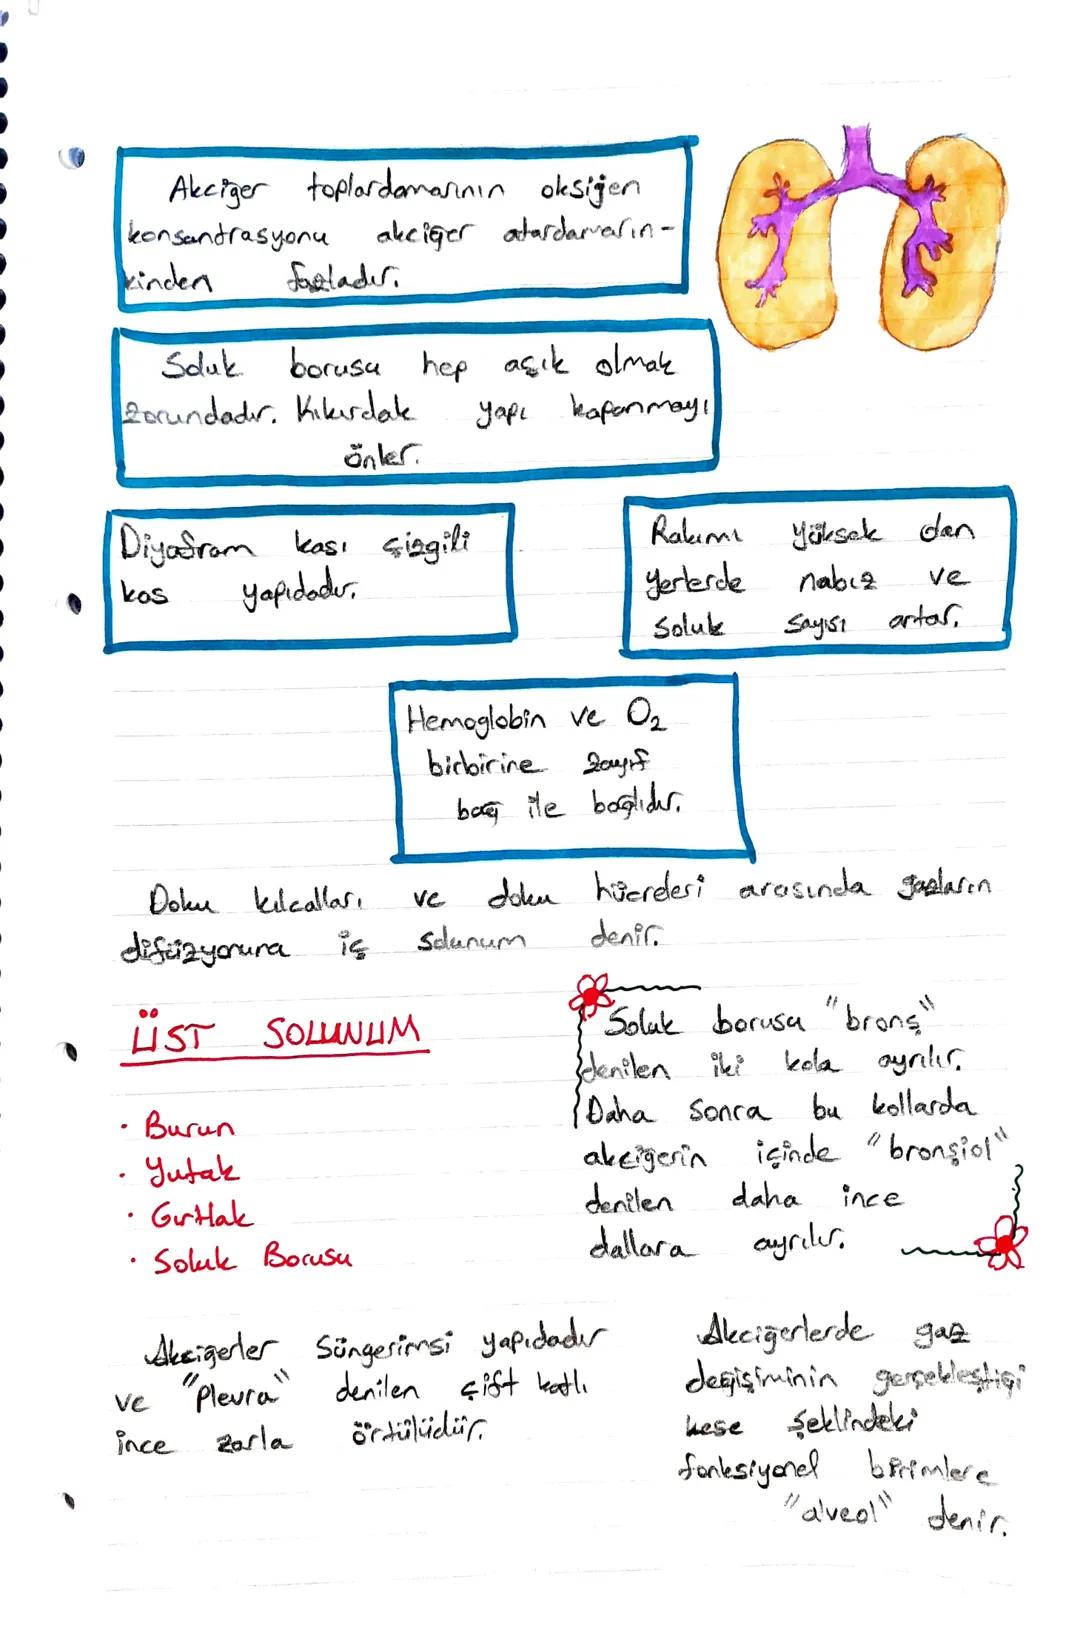 Akciğer toplardamarının oksijen
konsantrasyonu akciğer atardamarın-
kinden fazladır.
Soluk borusu hep açık olmak
zorundadır. Kıkırdak yapı kapanmayı
önler.
Diyafram kası çizgili
kas yapıdadır.
Rakımı yüksek olan
yerlerde nabız ve
soluk sayısı artar.
Hemoglobin ve O₂
birbirine zayıf
bağ ile bağlıdır.
Doku kılcalları ve doku hücreleri arasında gazların
difüzyonuna iç solunum denir.
ÜST SOLUNUM
· Burun
· Yutak
· Gırtlak
· Soluk Borusu
Soluk borusu "bronş"
denilen iki kola ayrılır.
Daha sonra bu kollarda
akciğerin içinde "bronşiol"
denilen daha ince
dallara ayrılır.
Akciğerler süngerimsi yapıdadır
ve "Plevra" denilen çift katlı
ince zarla örtülüdür.
Akciğerlerde gaz
değişiminin gerçekleştiği
kese şeklindeki
fonksiyonel birimlere
"alveol" denir.